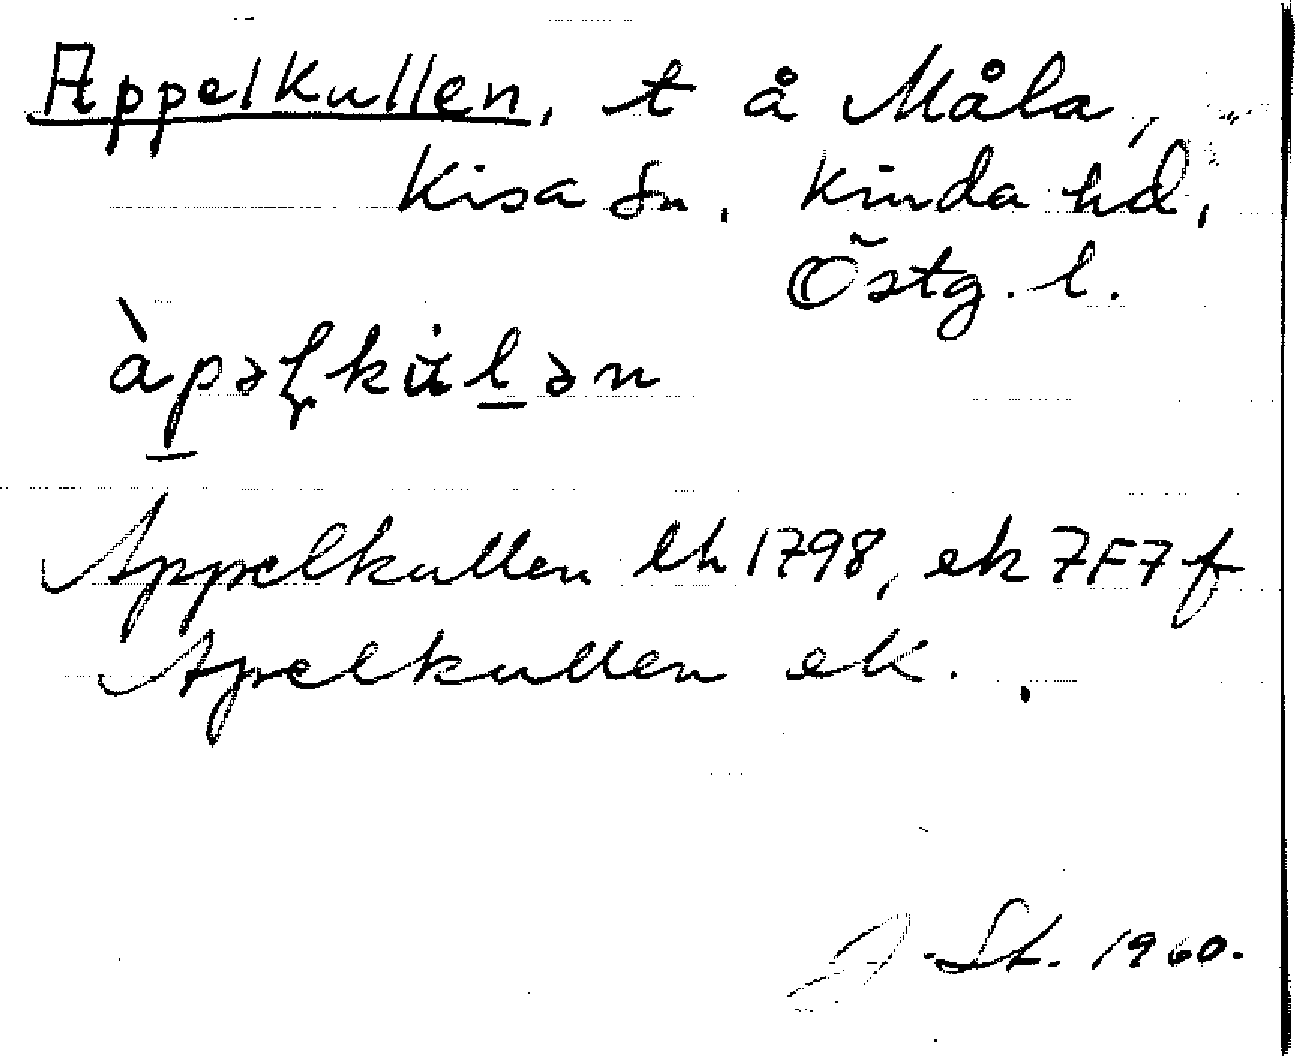 Appelkullen, t å Måla,
Kisa sn. Kinda hd,
Östg. l.
àpəlkulən
Appelkullen lh 1798, ek 7F7f
Apelkullen ek.
St. 1960.